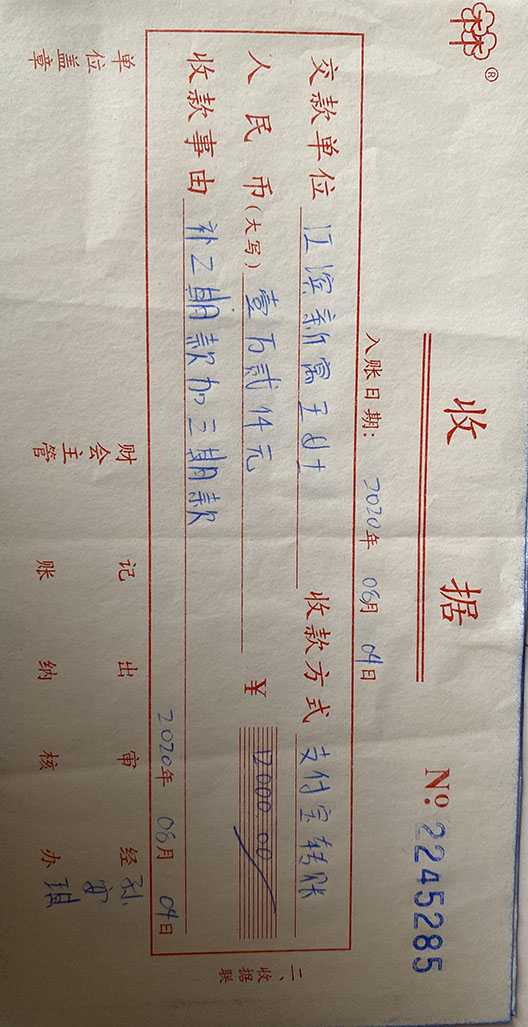 林®
收 据
№: 2245285
入账日期: 2020年 08月 04日
交款单位 江滨新寓王女士 收款方式 支付宝转账
人民币(大写) 壹万贰仟元 ¥ 12000.00
收款事由 补二期款加三期款
2020年 08月 04日
二、收据联
单位盖章 财会主管 记账 出纳 审核 经办